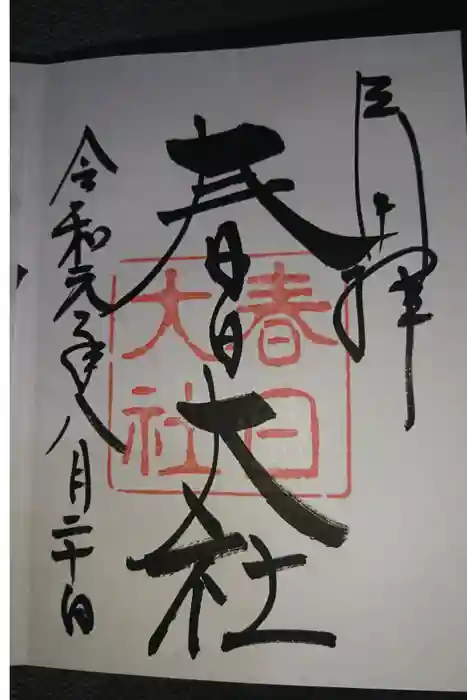 奉拝
春日大社
春日
大社
令和元年八月二十日